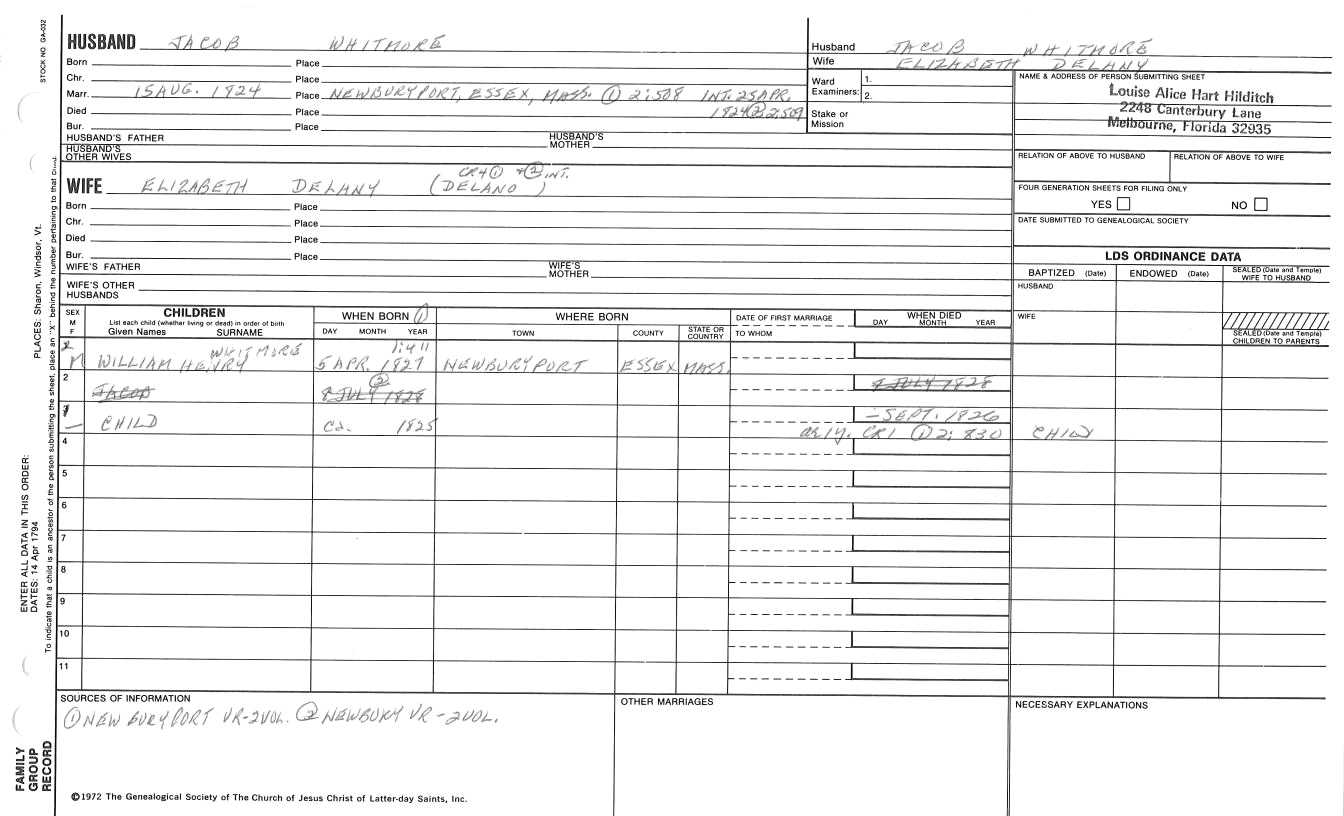 STOCK NO GA-032
HUSBAND JACOB WHITMORE
Born Place
Chr. Place
Marr. 15 AUG. 1824 Place NEWBURYPORT, ESSEX, MASS. ① 2:508 INT. 25 APR.
Died Place 1824 ② 2:509
Bur. Place
HUSBAND'S FATHER HUSBAND'S MOTHER
HUSBAND'S OTHER WIVES
CR4 ① + ② INT.
WIFE ELIZABETH DELANY (DELANO)
Born Place
Chr. Place
Died Place
Bur. Place
WIFE'S FATHER WIFE'S MOTHER
WIFE'S OTHER HUSBANDS
Husband JACOB WHITMORE
Wife ELIZABETH DELANY
Ward Examiners: 1.
2.
Stake or Mission
NAME & ADDRESS OF PERSON SUBMITTING SHEET
Louise Alice Hart Hilditch
2248 Canterbury Lane
Melbourne, Florida 32935
RELATION OF ABOVE TO HUSBAND RELATION OF ABOVE TO WIFE
FOUR GENERATION SHEETS FOR FILING ONLY
YES NO
DATE SUBMITTED TO GENEALOGICAL SOCIETY
LDS ORDINANCE DATA
BAPTIZED (Date) ENDOWED (Date) SEALED (Date and Temple) WIFE TO HUSBAND
HUSBAND
WIFE
SEALED (Date and Temple) CHILDREN TO PARENTS
SEX M F
CHILDREN
List each child (whether living or dead) in order of birth
Given Names SURNAME
WHEN BORN ①
DAY MONTH YEAR
WHERE BORN
TOWN COUNTY STATE OR COUNTRY
DATE OF FIRST MARRIAGE
TO WHOM
WHEN DIED
DAY MONTH YEAR
2 WHITMORE 1:411
M WILLIAM HENRY 5 APR. 1827 NEWBURYPORT ESSEX MASS.
2 ②
JACOB 8 JULY 1828 8 JULY 1828
1 - SEPT. 1826
— CHILD ca. 1825 ae 1y. CR1 ① 2:830 CHILD
4
5
6
7
8
9
10
11
SOURCES OF INFORMATION
① NEWBURYPORT VR-2VOL. ② NEWBURY VR-2VOL.
OTHER MARRIAGES
NECESSARY EXPLANATIONS
©1972 The Genealogical Society of The Church of Jesus Christ of Latter-day Saints, Inc.
FAMILY GROUP RECORD
ENTER ALL DATA IN THIS ORDER:
DATES: 14 Apr 1794
PLACES: Sharon, Windsor, Vt.
To indicate that a child is an ancestor of the person submitting the sheet, place an "X" behind the number pertaining to that